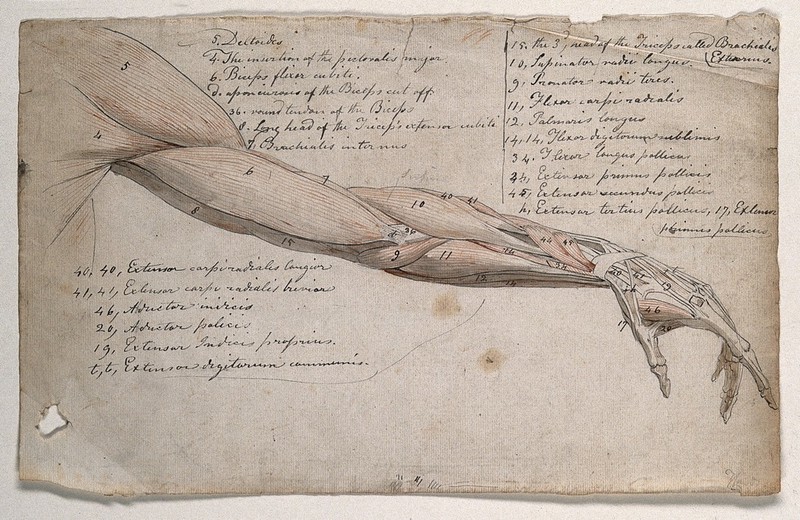 5. Deltoides
4. The insertion of the pectoralis major.
6. Biceps flexor cubiti.
d. aponeurosis of the Biceps cut off
36. round tendon of the Biceps
8. Long head of the Triceps extensor cubiti
7, Brachialis internus
15. the 3d. head of the Triceps called Brachialis
Externus.
10, Supinator radii longus.
9, Pronator radii teres.
11, Flexor carpi radialis
12. Palmaris longus
14, 14, Flexor digitorum sublimis
34. Flexor longus pollicis
44, Extensor primus pollicis
45, Extensor secundus pollicis
Extensor tertius pollicis, 17, Extensor
primus pollicis
40. 40, Extensor carpi radialis longior
41, 41, Extensor carpi radialis brevior
46, Abductor indicis
20, Adductor policis
19, Extensor Indicis proprius.
t, t, Extensor digitorum communis.
5
4
6
7
8
15
10
40
41
36
9
11
12
14
44
45
34
17
19
46
20